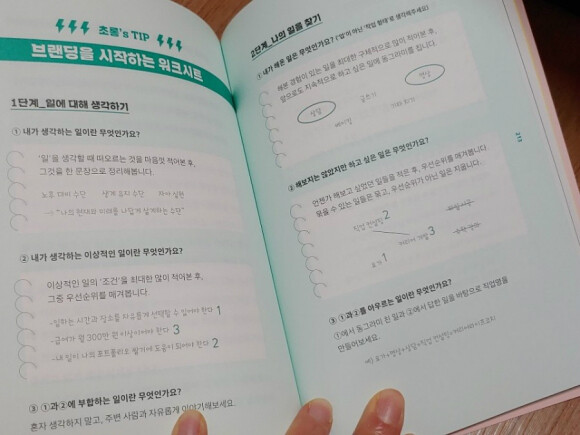 초롱's TIP
브랜딩을 시작하는 워크시트
1단계_일에 대해 생각하기
① 내가 생각하는 일이란 무엇인가요?
'일'을 생각할 때 떠오르는 것을 마음껏 적어본 후,
그것을 한 문장으로 정리해봅니다.
노후 대비 수단 생계 유지 수단 자아 실현
→ "나의 현재와 미래를 나답게 설계하는 수단"
② 내가 생각하는 이상적인 일이란 무엇인가요?
이상적인 일의 '조건'을 최대한 많이 적어본 후,
그중 우선순위를 매겨봅니다.
-일하는 시간과 장소를 자유롭게 선택할 수 있어야 한다 1
-급여가 월 300만 원 이상이어야 한다 3
-내 일이 나의 포트폴리오 쌓기에 도움이 되어야 한다 2
③ ①과 ②에 부합하는 일이란 무엇인가요?
혼자 생각하지 말고, 주변 사람과 자유롭게 이야기해보세요.
2단계_나의 일을 찾기
① 내가 해온 일은 무엇인가요? ('업'이 아닌 '작업 형태'로 생각해주세요)
해본 경험이 있는 일을 최대한 구체적으로 많이 적어본 후,
앞으로도 지속적으로 하고 싶은 일에 동그라미를 칩니다.
상담 글쓰기 명상
② 해보지는 않았지만 하고 싶은 일은 무엇인가요?
언젠가 해보고 싶었던 일들을 적은 후, 우선순위를 매겨봅니다.
묶을 수 있는 일들은 묶고, 우선순위가 아닌 일은 지웁니다.
직업 컨설팅 2
커리어 개발 3
요가 1
③ ①과 ②를 아우르는 일이란 무엇인가요?
①에서 동그라미 친 일과 ②에서 답한 일을 바탕으로 직업명을
만들어보세요.
예) 요가+명상+상담+직업 컨설팅=커리어테라피스트
217